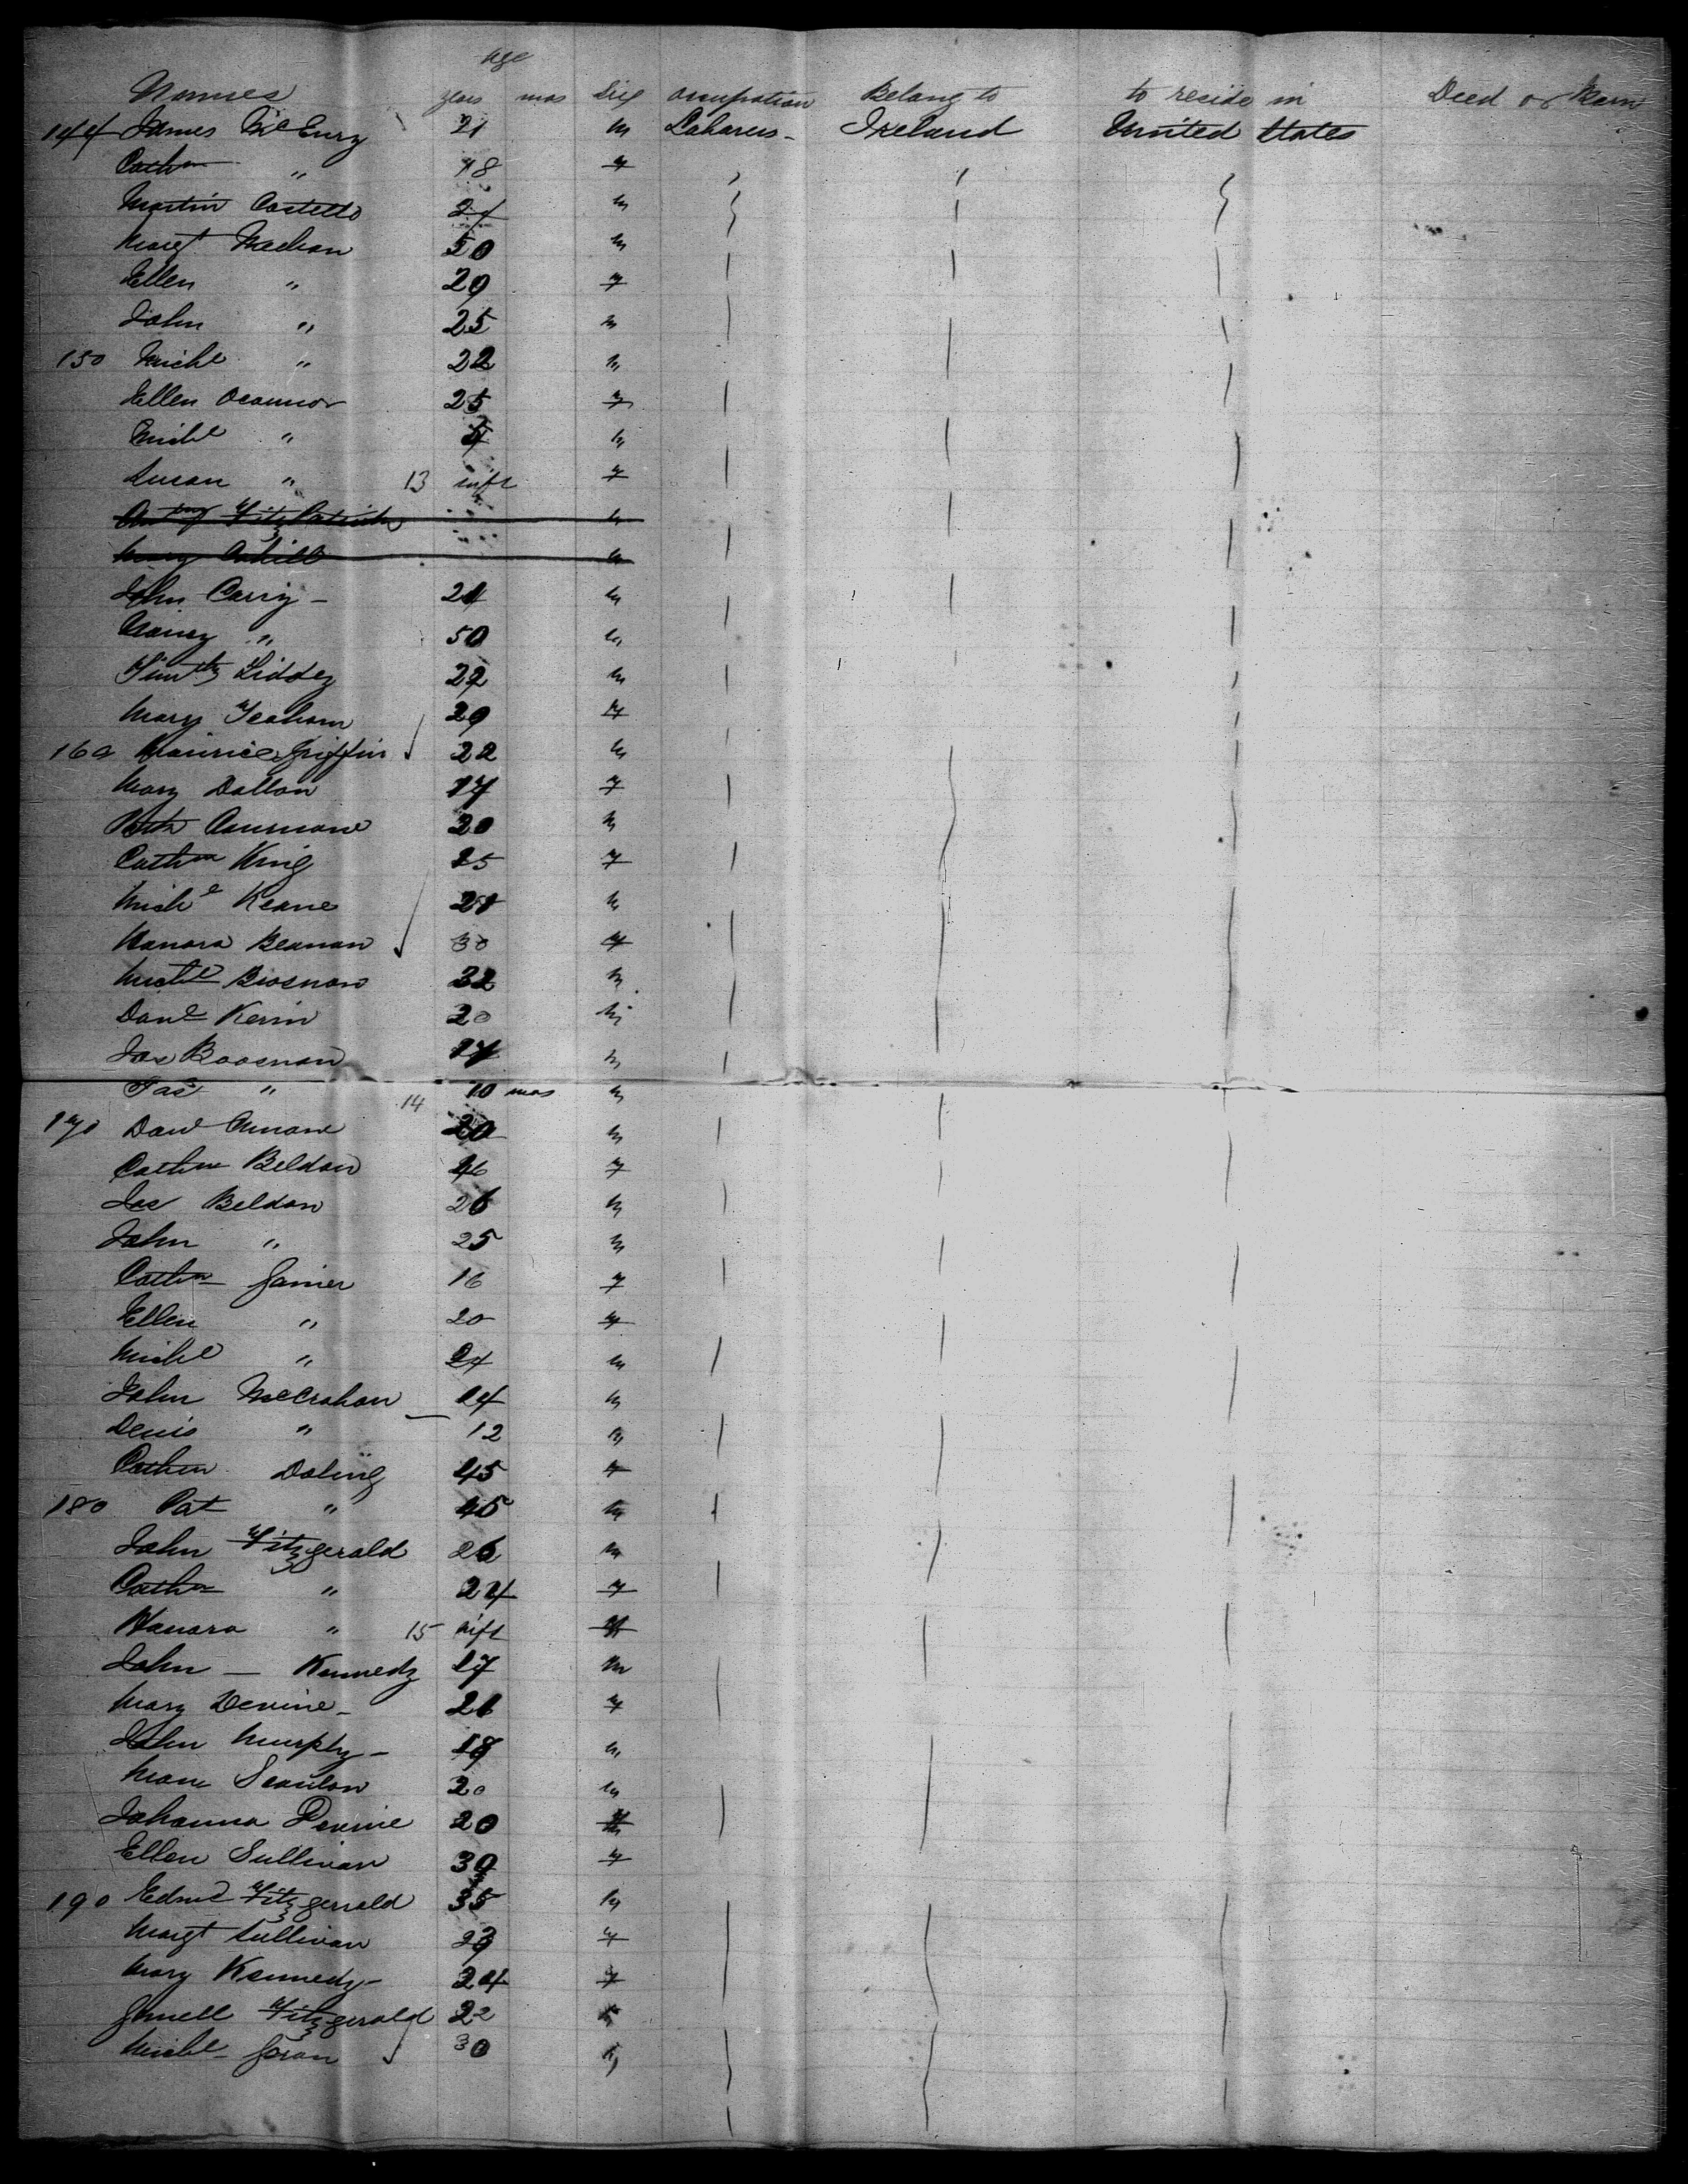 age
Names years mos Sex occupation Belong to to reside in Died or Born
144 James McEnry 21 m Laborers - Ireland United States
Cathn " 18 f
Martin Costello 24 m
Margt Mechan 50 m
Ellen " 29 f
John " 25 m
150 Michl " 22 m
Ellen Oconnor 25 f
Michl " 4 m
Susan " 13 inft f
Antny FitzPatrick m
Mary Cahill m
John Carrig - 21 m
Nancy " 50 m
Timthy Liddy 22 m
Mary Teahan 29 f
160 Maurice Griffin 22 m
Mary Dallon 17 f
20 m
Cathn King 25 f
Michl Keane 21 m
Hanora Beanan 30 f
Michl Brosnan 32 m
Danl Kerin 20 m
Jas Boosnan 17 m
Pat " 14 10 mos m
170 Danl 20 m
Cathn Beldan 26 f
Jas Beldan 26 m
John " 25 m
Cathn Janier 16 f
Ellen " 20 f
Michl " 24 m
John McCrahan 14 m
Denis " 12 m
Cathn Doling 45 f
180 Pat " 45 m
John Fitzgerald 26 m
Cathn " 24 f
Hanora " 15 inft f
John - Kennedy 17 m
Mary Devine - 21 f
John Murphy - 18 m
Scanlon 20 m
Johanna Devine 20 f
Ellen Sullivan 30 f
190 Edmd Fitzgerrald 35 m
Margt Sullivan 23 f
Mary Kennedy - 24 f
Fitzgerald 22
Michl - Goran 30 m